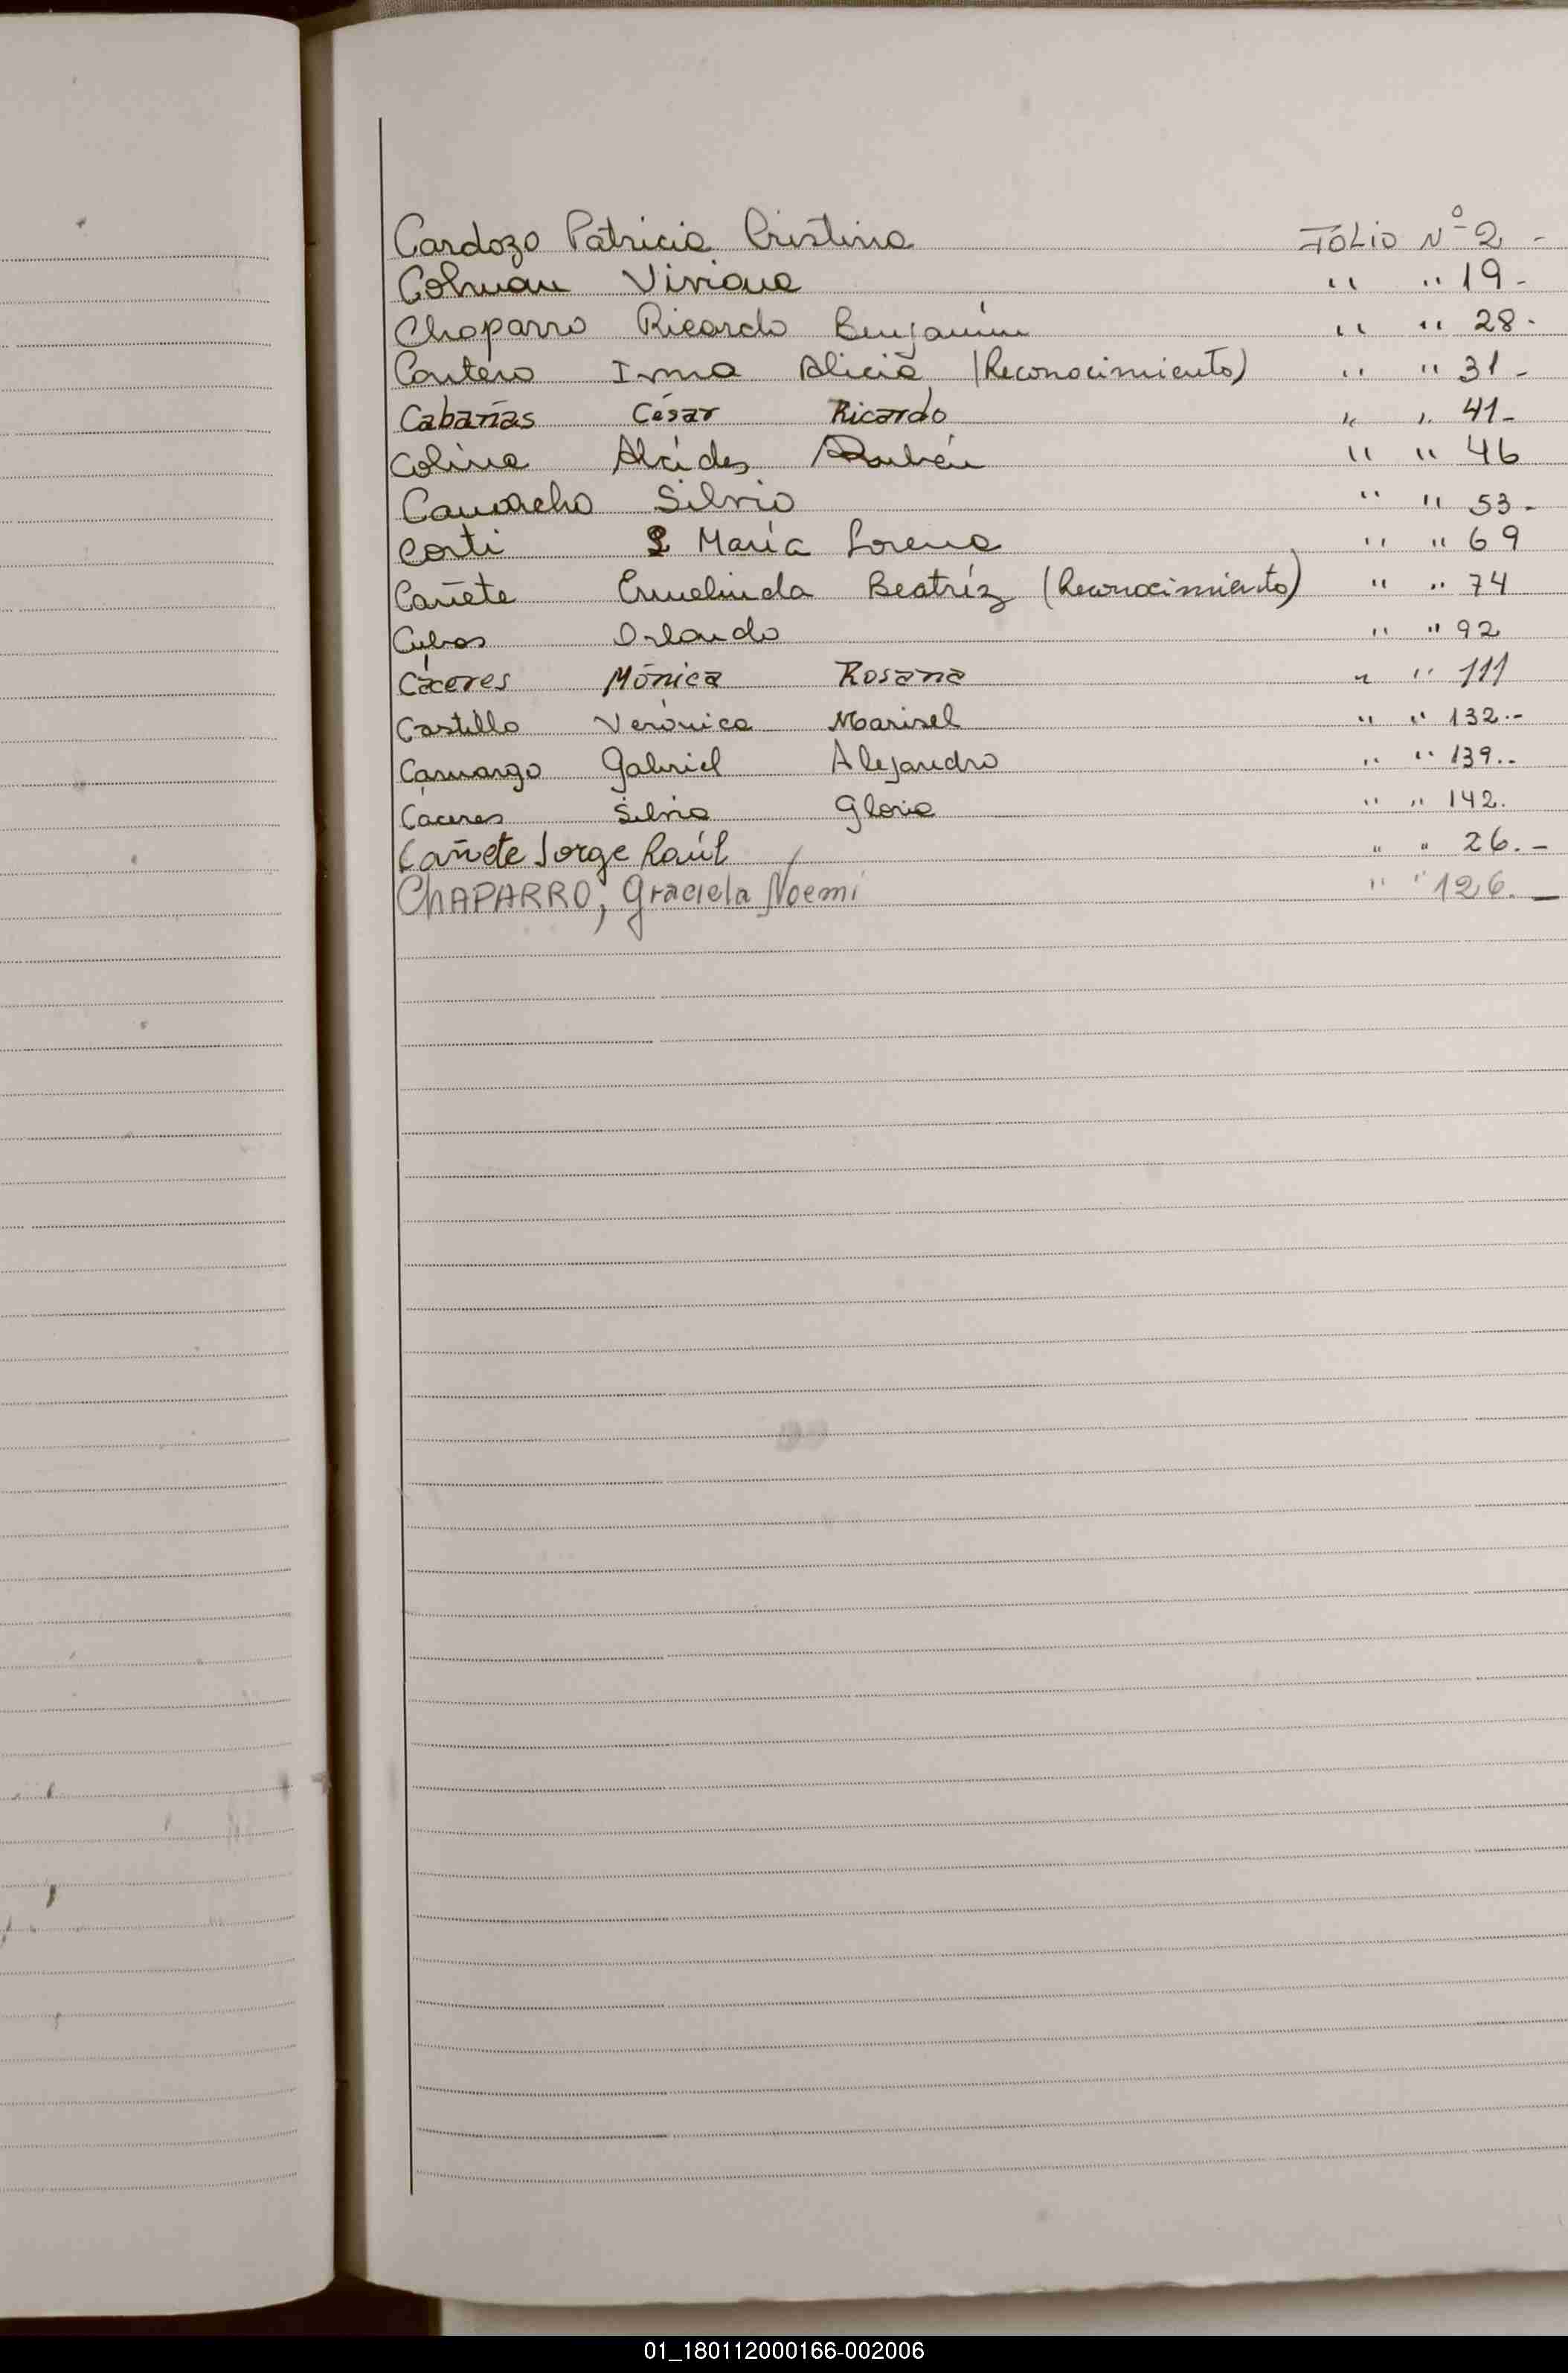 Cardozo Patricia Cristina FOLIO Nº 2 -
Colman Viviana " " 19 -
Chaparro Ricardo Benjamín " " 28 -
Cantero Irma Alicia (Reconocimiento) " " 31 -
Cabañas César Ricardo " " 41 -
Colina Alcides Rubén " " 46
Camacho Silvio " " 53 -
Corti María Lorena " " 69
Cañete Ermelinda Beatríz (Reconocimiento) " " 74
Cubas Orlando " " 92
Cáceres Mónica Rosana " " 111
Castillo Verónica Marisel " " 132.-
Camargo Gabriel Alejandro " " 139.-
Caceres Silvia Gloria " " 142.
Cañete Jorge Raúl " " 26.-
ChAPARRO, Graciela Noemí " " 126.-
01_180112000166-002006